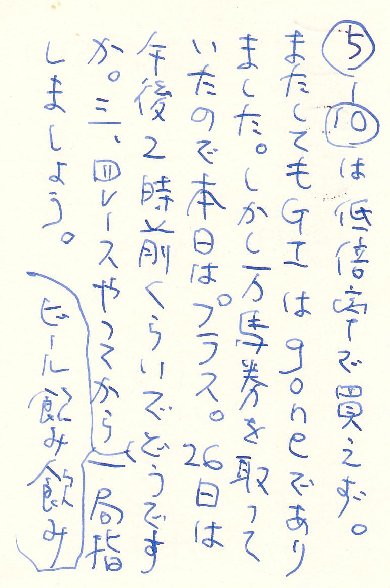 ⑤-⑩は低倍率で買えず。
またしてもGIはgoneであり
ました。しかし一万馬券を取って
いたので本日はプラス。26日は
午後2時前くらいでどうです
か。三、四レースやってから一局指
しましょう。
ビール飲み飲み